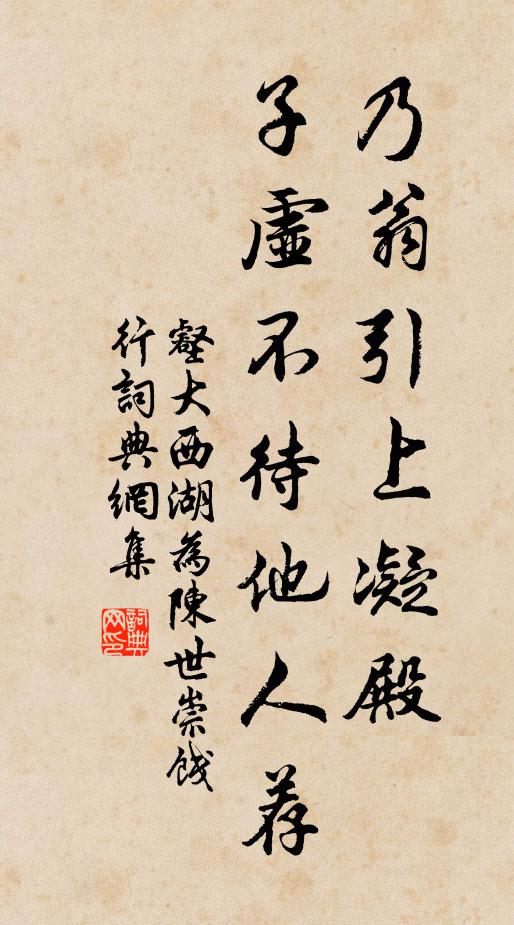 乃翁引上凝殿
子虛不待他人荐
壑大西湖為陳世崇餞
行詞典網集
詞典網印